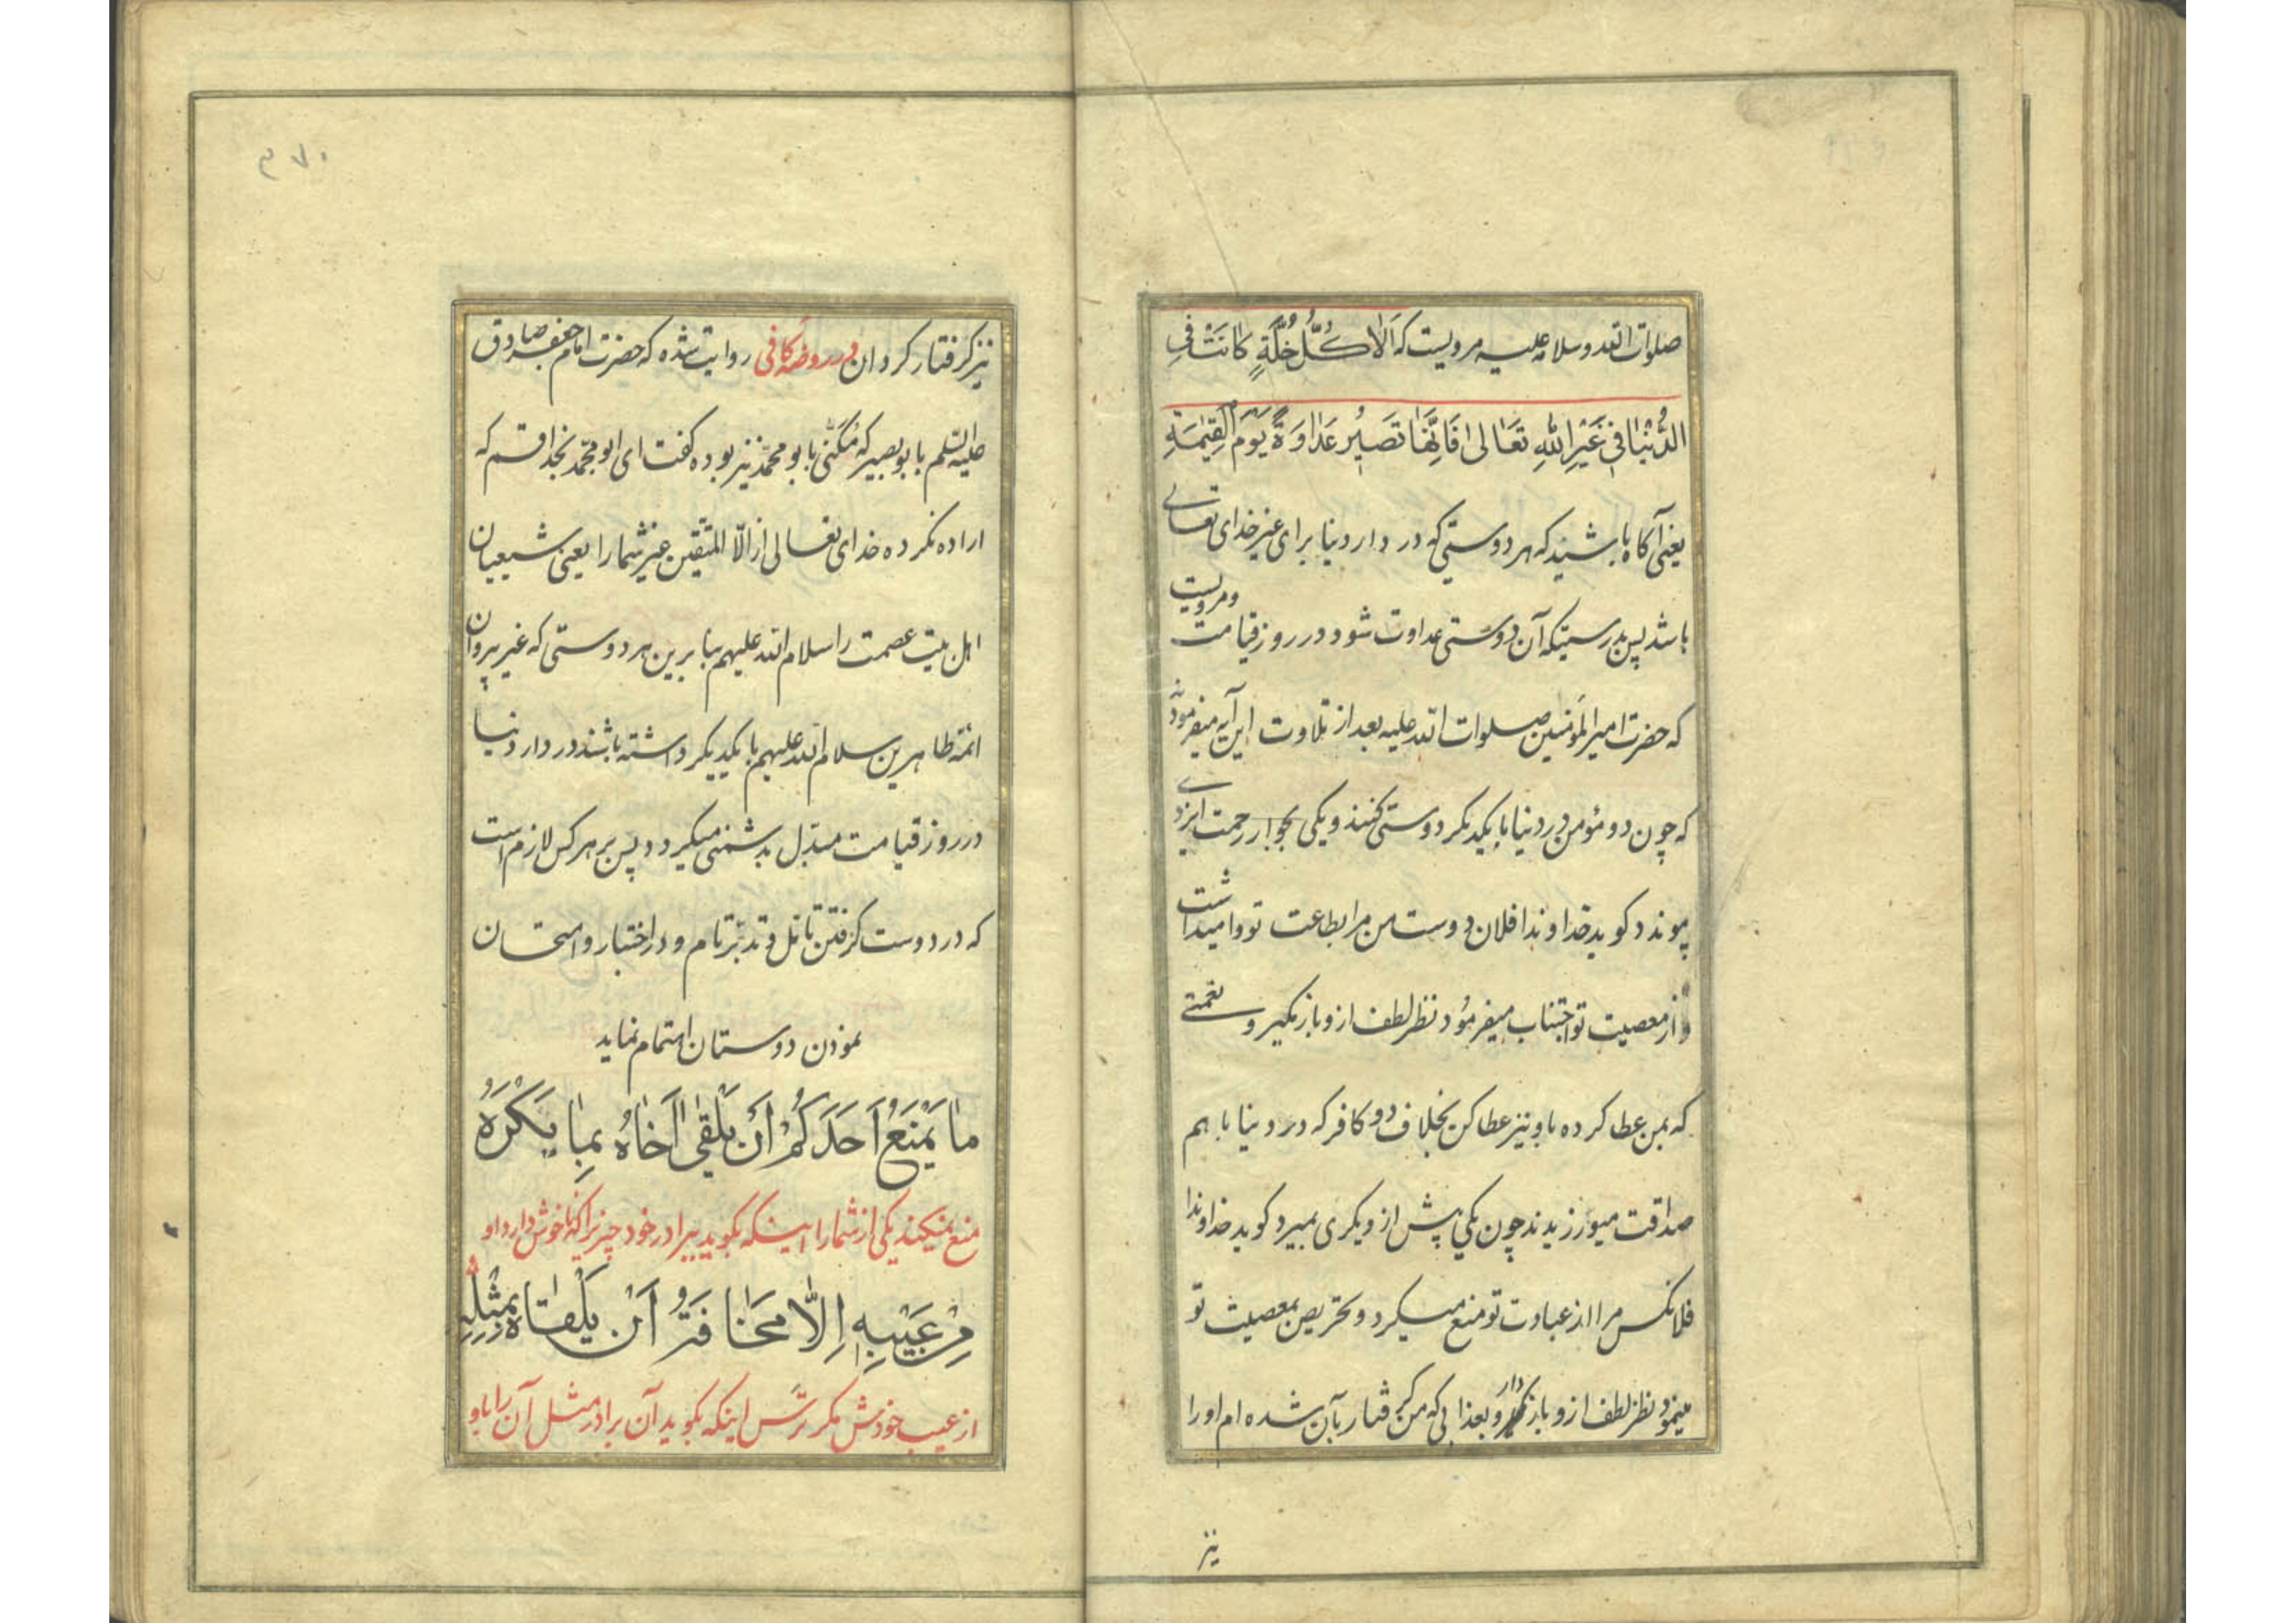 صلوات الله و سلامه علیه مرویست که اَلا کُلُّ خُلَّةٍ کانَتْ فِي
الدُّنْیا في غَیْرِ اللهِ تَعالی فَاِنَّها تَصیرُ عَداوَةً یَوْمَ الْقِیٰمَةِ
یعنی آکاه باشید که هر دوستی که در دار دنیا برای غیر خدای تعالی
باشد پس بدرستیکه آن دوستی عداوت شود در روز قیامت و مرویست
که حضرت امیر المؤمنین صلوات الله علیه بعد از تلاوت این آیه میفرموده
که چون دو مؤمن در دنیا با یکدیکر دوستی کنند و یکی بجوار رحمت ایزدی
پیوندد کوید خداوندا فلان دوست من مرا بطاعت تو وامیداشت
و از معصیت تو اجتناب میفرمود نظر لطف ازو بازمکیر و نعمتی
که بمن عطا کرده باو نیز عطا کن بخلاف دو کافر که در دنیا با هم
صداقت میورزیدند چون یکی پیش از دیکری بمیرد کوید خداوندا
فلانکس مرا از عبادت تو منع میکرد و تحریص بمعصیت تو
مینمود نظر لطف ازو بازدار و بعذابی که من کرفتار بآن شده ام او را
نیز
۳۷۰
نیز کرفتار کردان در روضه کافی روایت شده که حضرت امام جعفر صادق
علیه السلم بابو بصیر که مُکَنّی بابو محمّد نیز بوده کفت ای ابو محمّد بخدا قسم که
اراده نکرده خدای تعالی از الّا المتّقین غیر شما را یعنی شیعیان
اهل بیت عصمت را سلام الله علیهم بنا برین هر دوستی که غیر پیروان
ائمّه طاهرین سلام الله علیهم با یکدیکر داشته باشند در دار دنیا
در روز قیامت مبدّل بدشمنی میکردد پس بر هر کس لازم است
که در دوست کرفتن تامّل و تدبّر تام و در اختبار و امتحان
نمودن دوستان اهتمام نماید
ما یَمْنَعُ اَحَدَکُمْ اَنْ یَلْقیٰ اَخاهُ بِما یَکْرَهُ
منع نمیکند یکی از شما را اینکه بکوید ببرادر خود چیزیرا که ناخوش دارد او
مِنْ عَیْبِهِ اِلّا مَخافَةُ اَنْ یَلْقاهُ بِمِثْلِهِ
از عیب خودش مکر ترس اینکه بکوید آن برادر مثل آن را باو